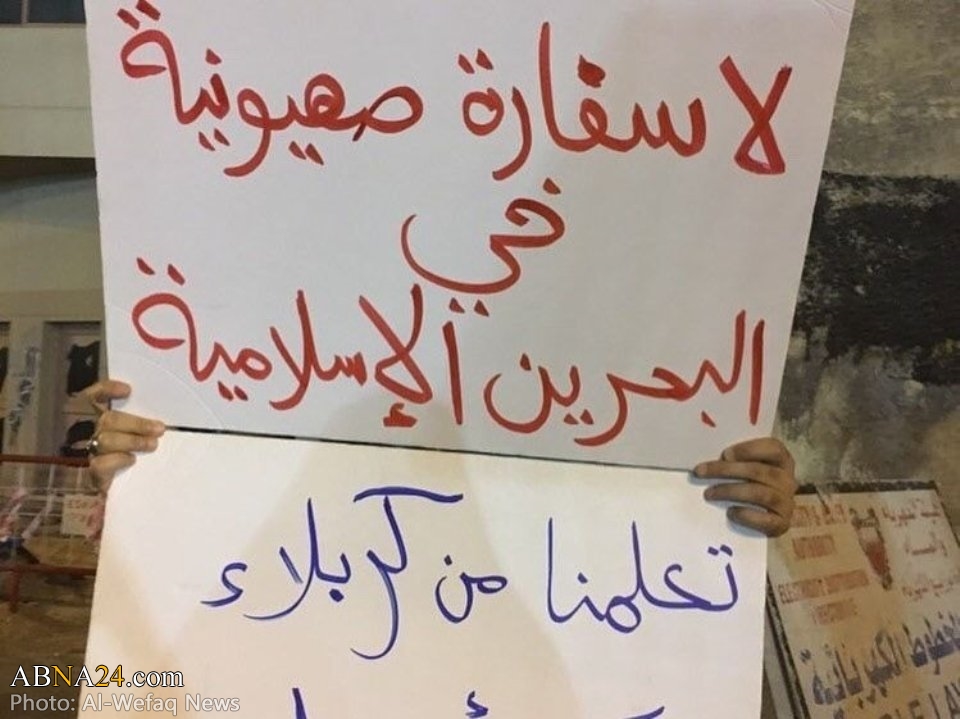 لا سفارة صهيونية
في
البحرين الإسلامية
تعلمنا من كربلاء
AUTHORITY
ELECTRICITY DISTRIBUTION
ABNA24.com
Photo: Al-Wefaq News